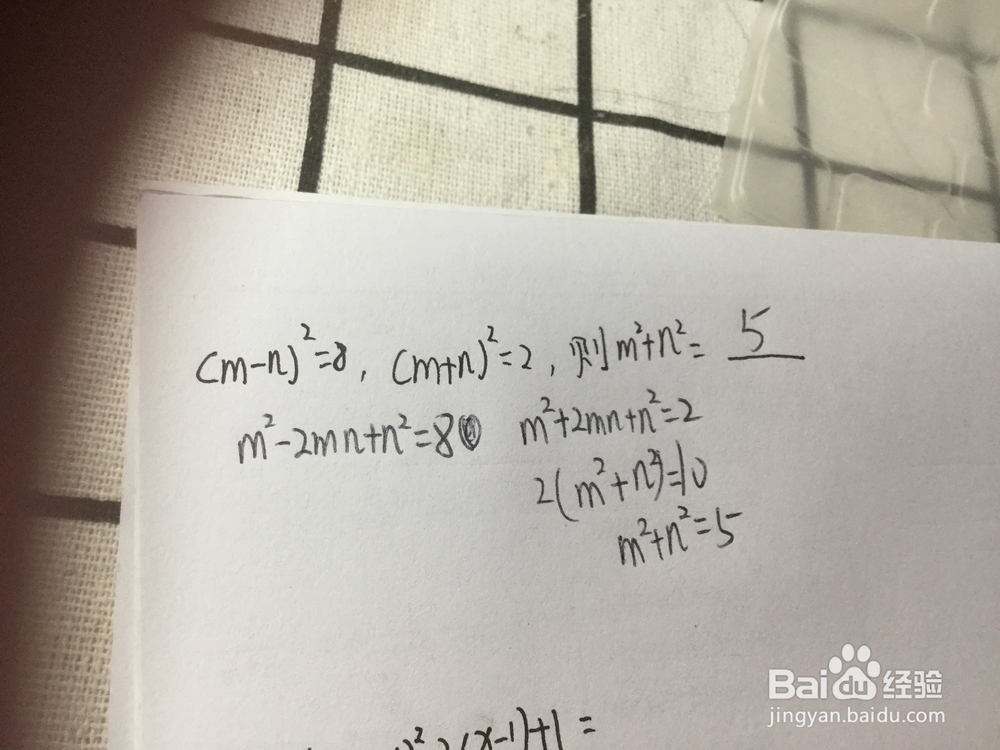 (m-n)²=8, (m+n)²=2, 则m²+n²= 5
m²-2mn+n²=8 m²+2mn+n²=2
2(m²+n²)=10
m²+n²=5
(x-1)+1=
Baidu经验
jingyan.baidu.com